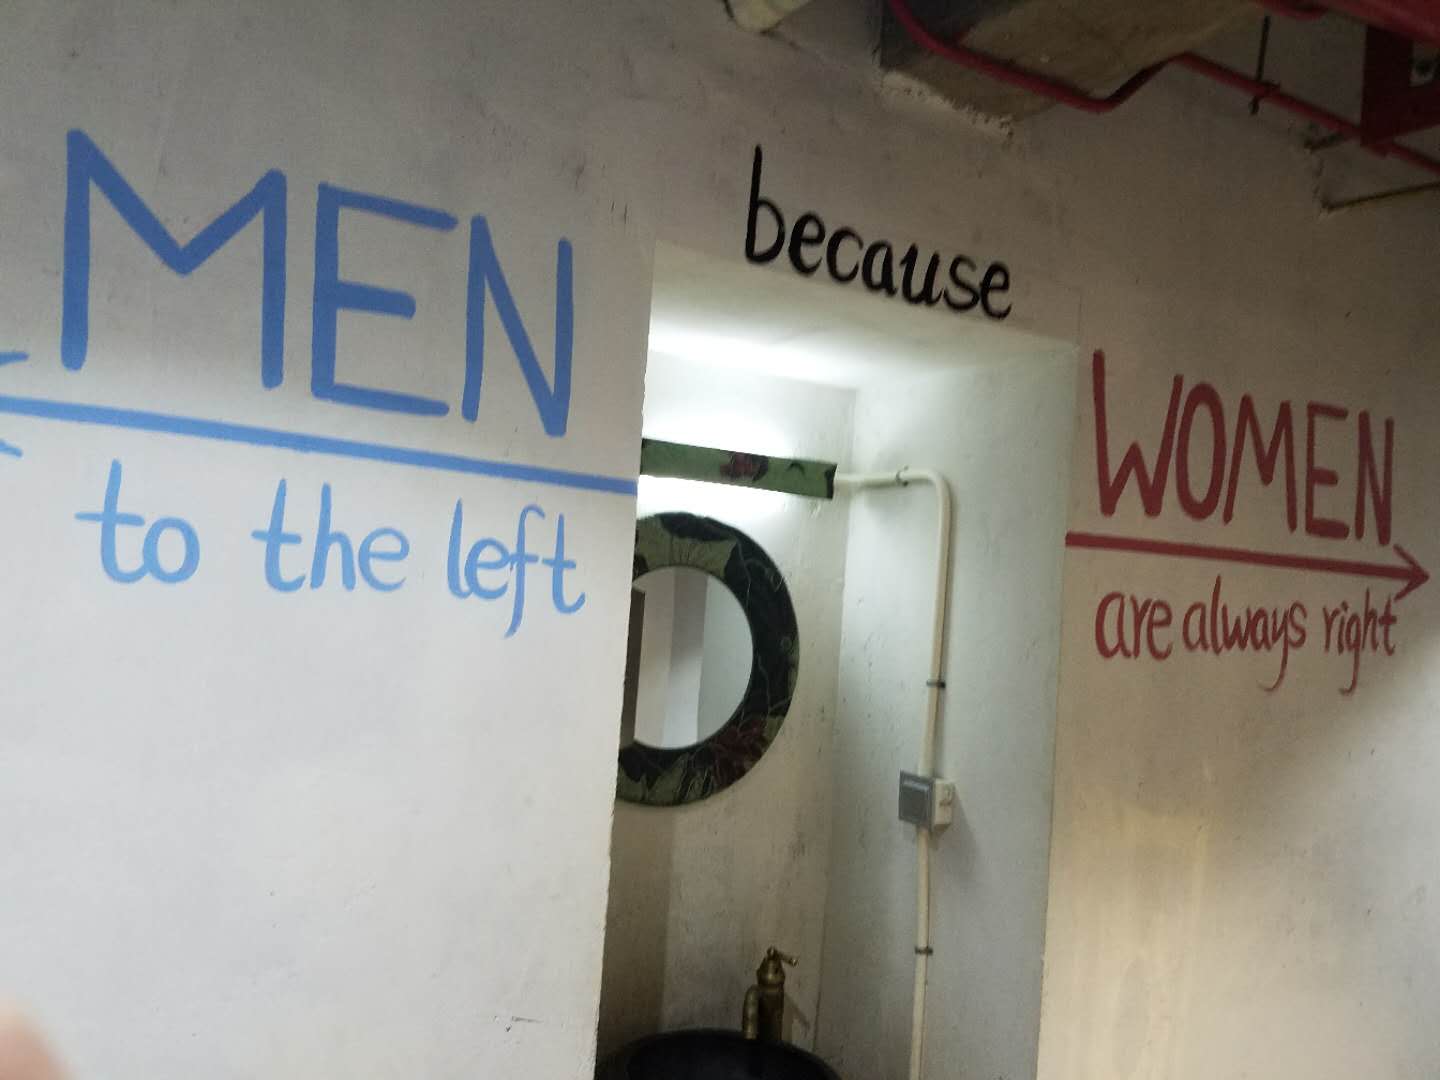 MEN
to the left
because
WOMEN
are always right